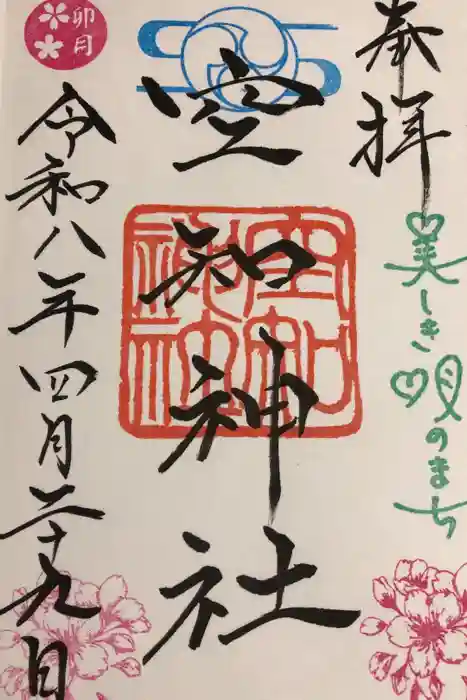 奉拝
美しき唄のまち
空知神社
空知神社
令和八年四月二十九日
卯月